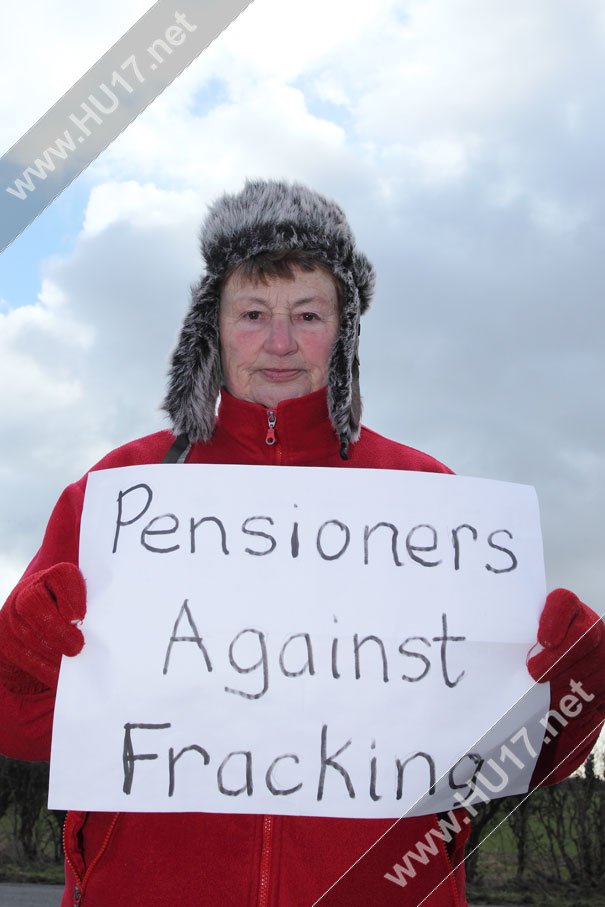 www.HU17.net
Pensioners
Against
Fracking
www.HU17.net